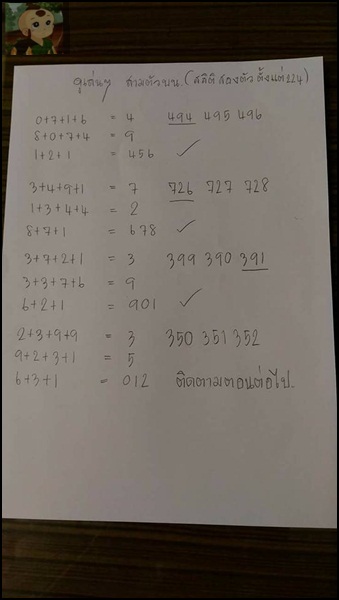 ดูเล่นๆ สามตัวบน (สถิติ สองตัว ตั้งแต่ 224)
0+7+1+6 = 4 494 495 496
8+0+7+4 = 9
1+2+1 = 456 ✓
3+4+9+1 = 7 726 727 728
1+3+4+4 = 2
8+7+1 = 678 ✓
3+7+2+1 = 3 399 390 391
3+3+7+6 = 9
6+2+1 = 901 ✓
2+3+9+9 = 3 350 351 352
9+2+3+1 = 5
6+3+1 = 012 ติดตามตอนต่อไป.